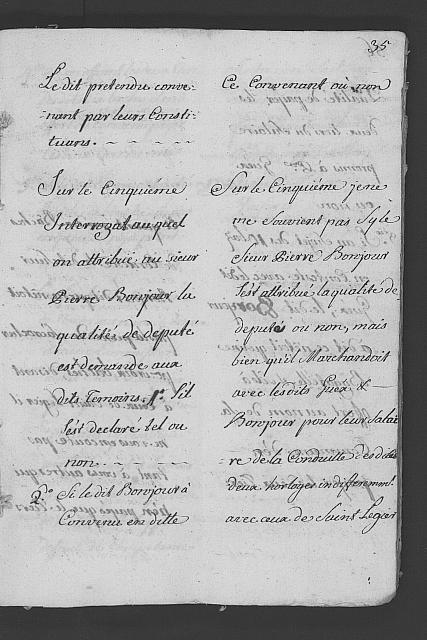 35
Le dit pretendu conve-
nant par leurs Consti-
tuans. - - - - -
Sur le Cinquiéme
Interrogat au quel
on attribüe au sieur
Pierre Bonjour la
qualités de deputé
est demande aux
dits Temoins. 1º. S'il
s'est declaré tel ou
non. - - - - -
2º. Si le dit Bonjour à
Convenu en ditte
Ce Convenant ou non
Sur le Cinquiéme je ne
me souvient pas sy le
Sieur Pierre Bonjour
s'est attribué la qualité de
deputés ou non, mais
bien qu'il Marchandoit
avec lesdits Guex &
Bonjour pour leur Salai
re de la Conduitte des dites
deux horloges indifferemmt.
avec ceux de Saint Legier